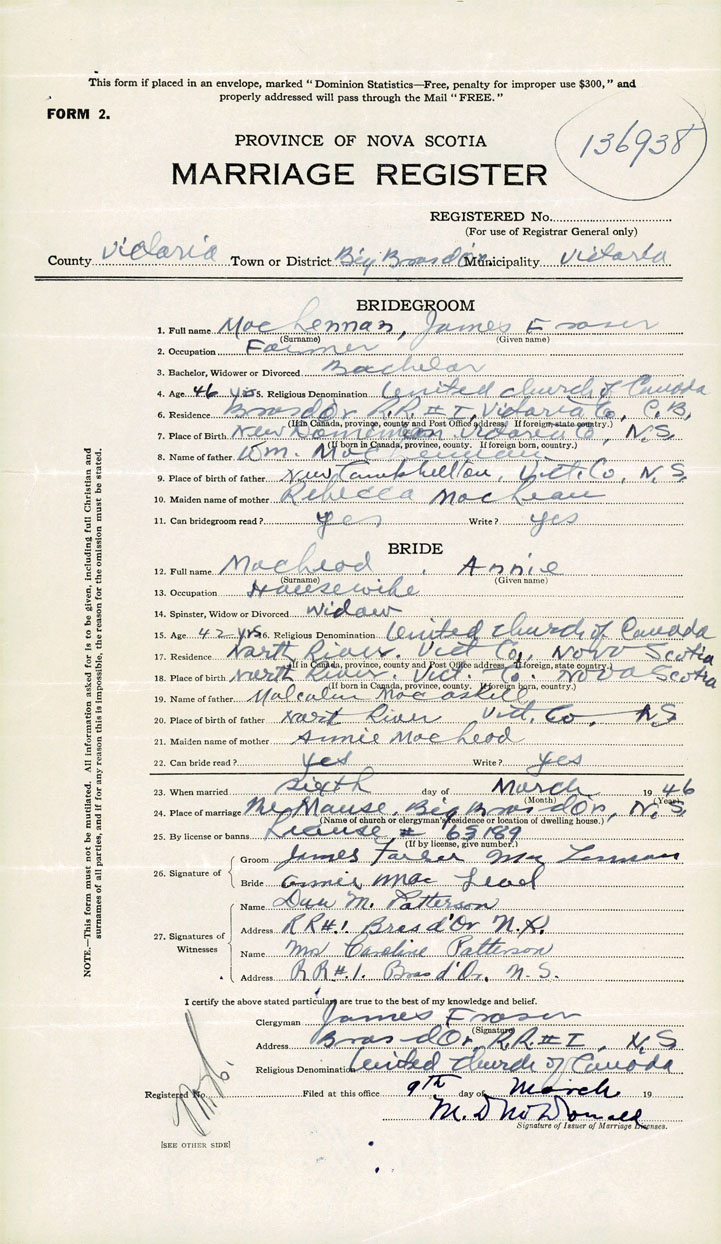 This form if placed in an envelope, marked “Dominion Statistics—Free, penalty for improper use $300,” and
properly addressed will pass through the Mail “FREE.”
FORM 2.
136938
PROVINCE OF NOVA SCOTIA
MARRIAGE REGISTER
REGISTERED No.
(For use of Registrar General only)
County Victoria Town or District Big Bras d'Or Municipality Victoria
BRIDEGROOM
1. Full name MacLennan, James Fraser
(Surname) (Given name)
2. Occupation Farmer
3. Bachelor, Widower or Divorced Bachelor
4. Age 46 yrs 5. Religious Denomination United Church of Canada
6. Residence Bras d'Or R.R. # 1, Victoria Co, C.B,
(If in Canada, province, county and Post Office address. If foreign, state country.)
7. Place of Birth New Victoria Co, N.S.
(If born in Canada, province, county. If foreign born, country.)
8. Name of father Wm. MacLennan
9. Place of birth of father New Campbellton, Vict. Co, N.S.
10. Maiden name of mother Rebecca MacLean
11. Can bridegroom read? yes Write? yes
BRIDE
12. Full name MacLeod, Annie
(Surname) (Given name)
13. Occupation Housewife
14. Spinster, Widow or Divorced Widow
15. Age 42 yrs 16. Religious Denomination United Church of Canada
17. Residence North River. Vict Co, Nova Scotia
(If in Canada, province, county and Post Office address. If foreign, state country.)
18. Place of birth North River. Vict. Co. Nova Scotia
(If born in Canada, province, county. If foreign born, country.)
19. Name of father Malcolm MacAskill
20. Place of birth of father Nort River Vict. Co, N S
21. Maiden name of mother Annie MacLeod
22. Can bride read? yes Write? yes
23. When married sixth day of March 1946
(Month) (Year)
24. Place of marriage The Manse, Big Bras d'Or, N.S.
(Name of church or clergyman's residence or location of dwelling house.)
25. By license or banns License # 65189
(If by license, give number.)
26. Signature of
Groom James MacLennan
Bride Annie MacLeod
27. Signatures of Witnesses
Name Dan M. Patterson
Address RR#1 Bras d'Or N.S.
Name Mrs Caroline Patterson
Address RR#1. Bras d'Or, N.S.
I certify the above stated particulars are true to the best of my knowledge and belief.
Clergyman James Fraser
(Signature)
Address Bras d'Or, R.R. # 1, N.S
Religious Denomination United Church of Canada
Registered No. Filed at this office 9th day of March 19
M. D McDonald
Signature of Issuer of Marriage Licenses.
[SEE OTHER SIDE]
NOTE.—This form must not be mutilated. All information asked for is to be given, including full Christian and
surnames of all parties, and if for any reason this is impossible, the reason for the omission must be stated.